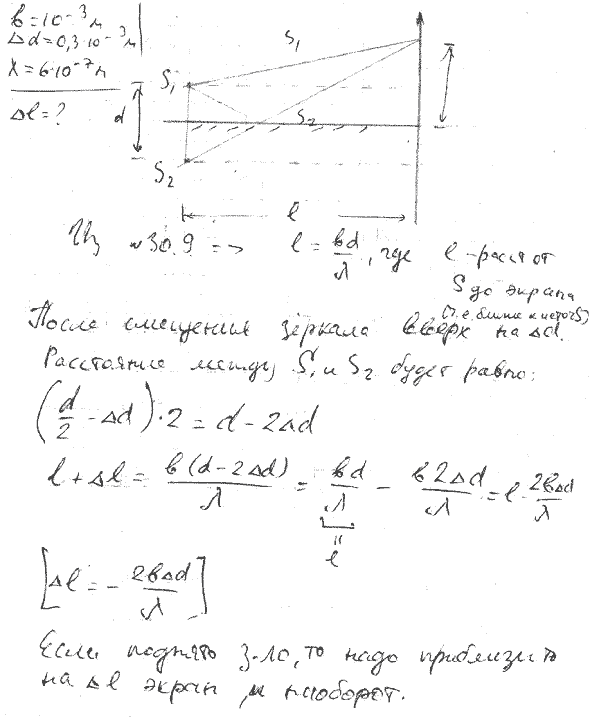 b = 10⁻³ м
Δd = 0,3·10⁻³ м
λ = 6·10⁻⁷ м
Δl = ?
S₁
S₁
d
S₂
S₂
l
Из №30.9 => l = bd/λ, где l - расст от
S до экрана
(т.е. ближе к источ S)
После смещения зеркала вверх на Δd.
Расстояние между S₁ и S₂ будет равно:
(d/2 - Δd)·2 = d - 2Δd
l + Δl = b(d - 2Δd)/λ = bd/λ - b2Δd/λ = l - 2bΔd/λ
l
[Δl = - 2bΔd/λ]
Если поднять з-ло, то надо приблизить
на Δl экран и наоборот.